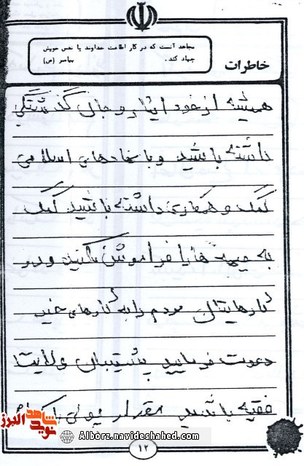 خاطرات
مجاهد آنست که در کار اطاعت خداوند با نفس خویش
جهاد کند.
پیامبر (ص)
همیشه از خود ایثار و جان گذشتگی
داشته باشید و با نهادهای اسلامی
کمک و همکاری داشته باشید کمک
به جبهه ها را فراموش نکنید و در
کارهایتان مردم را به کارهای خیر
دعوت فرمایید پشتیبان ولایت
فقیه باشید
۱۲
شاهد
نوید
البرز
Alborz.navideshahed.com